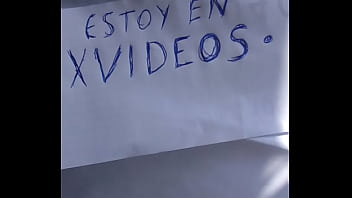 ESTOY EN
XVIDEOS.